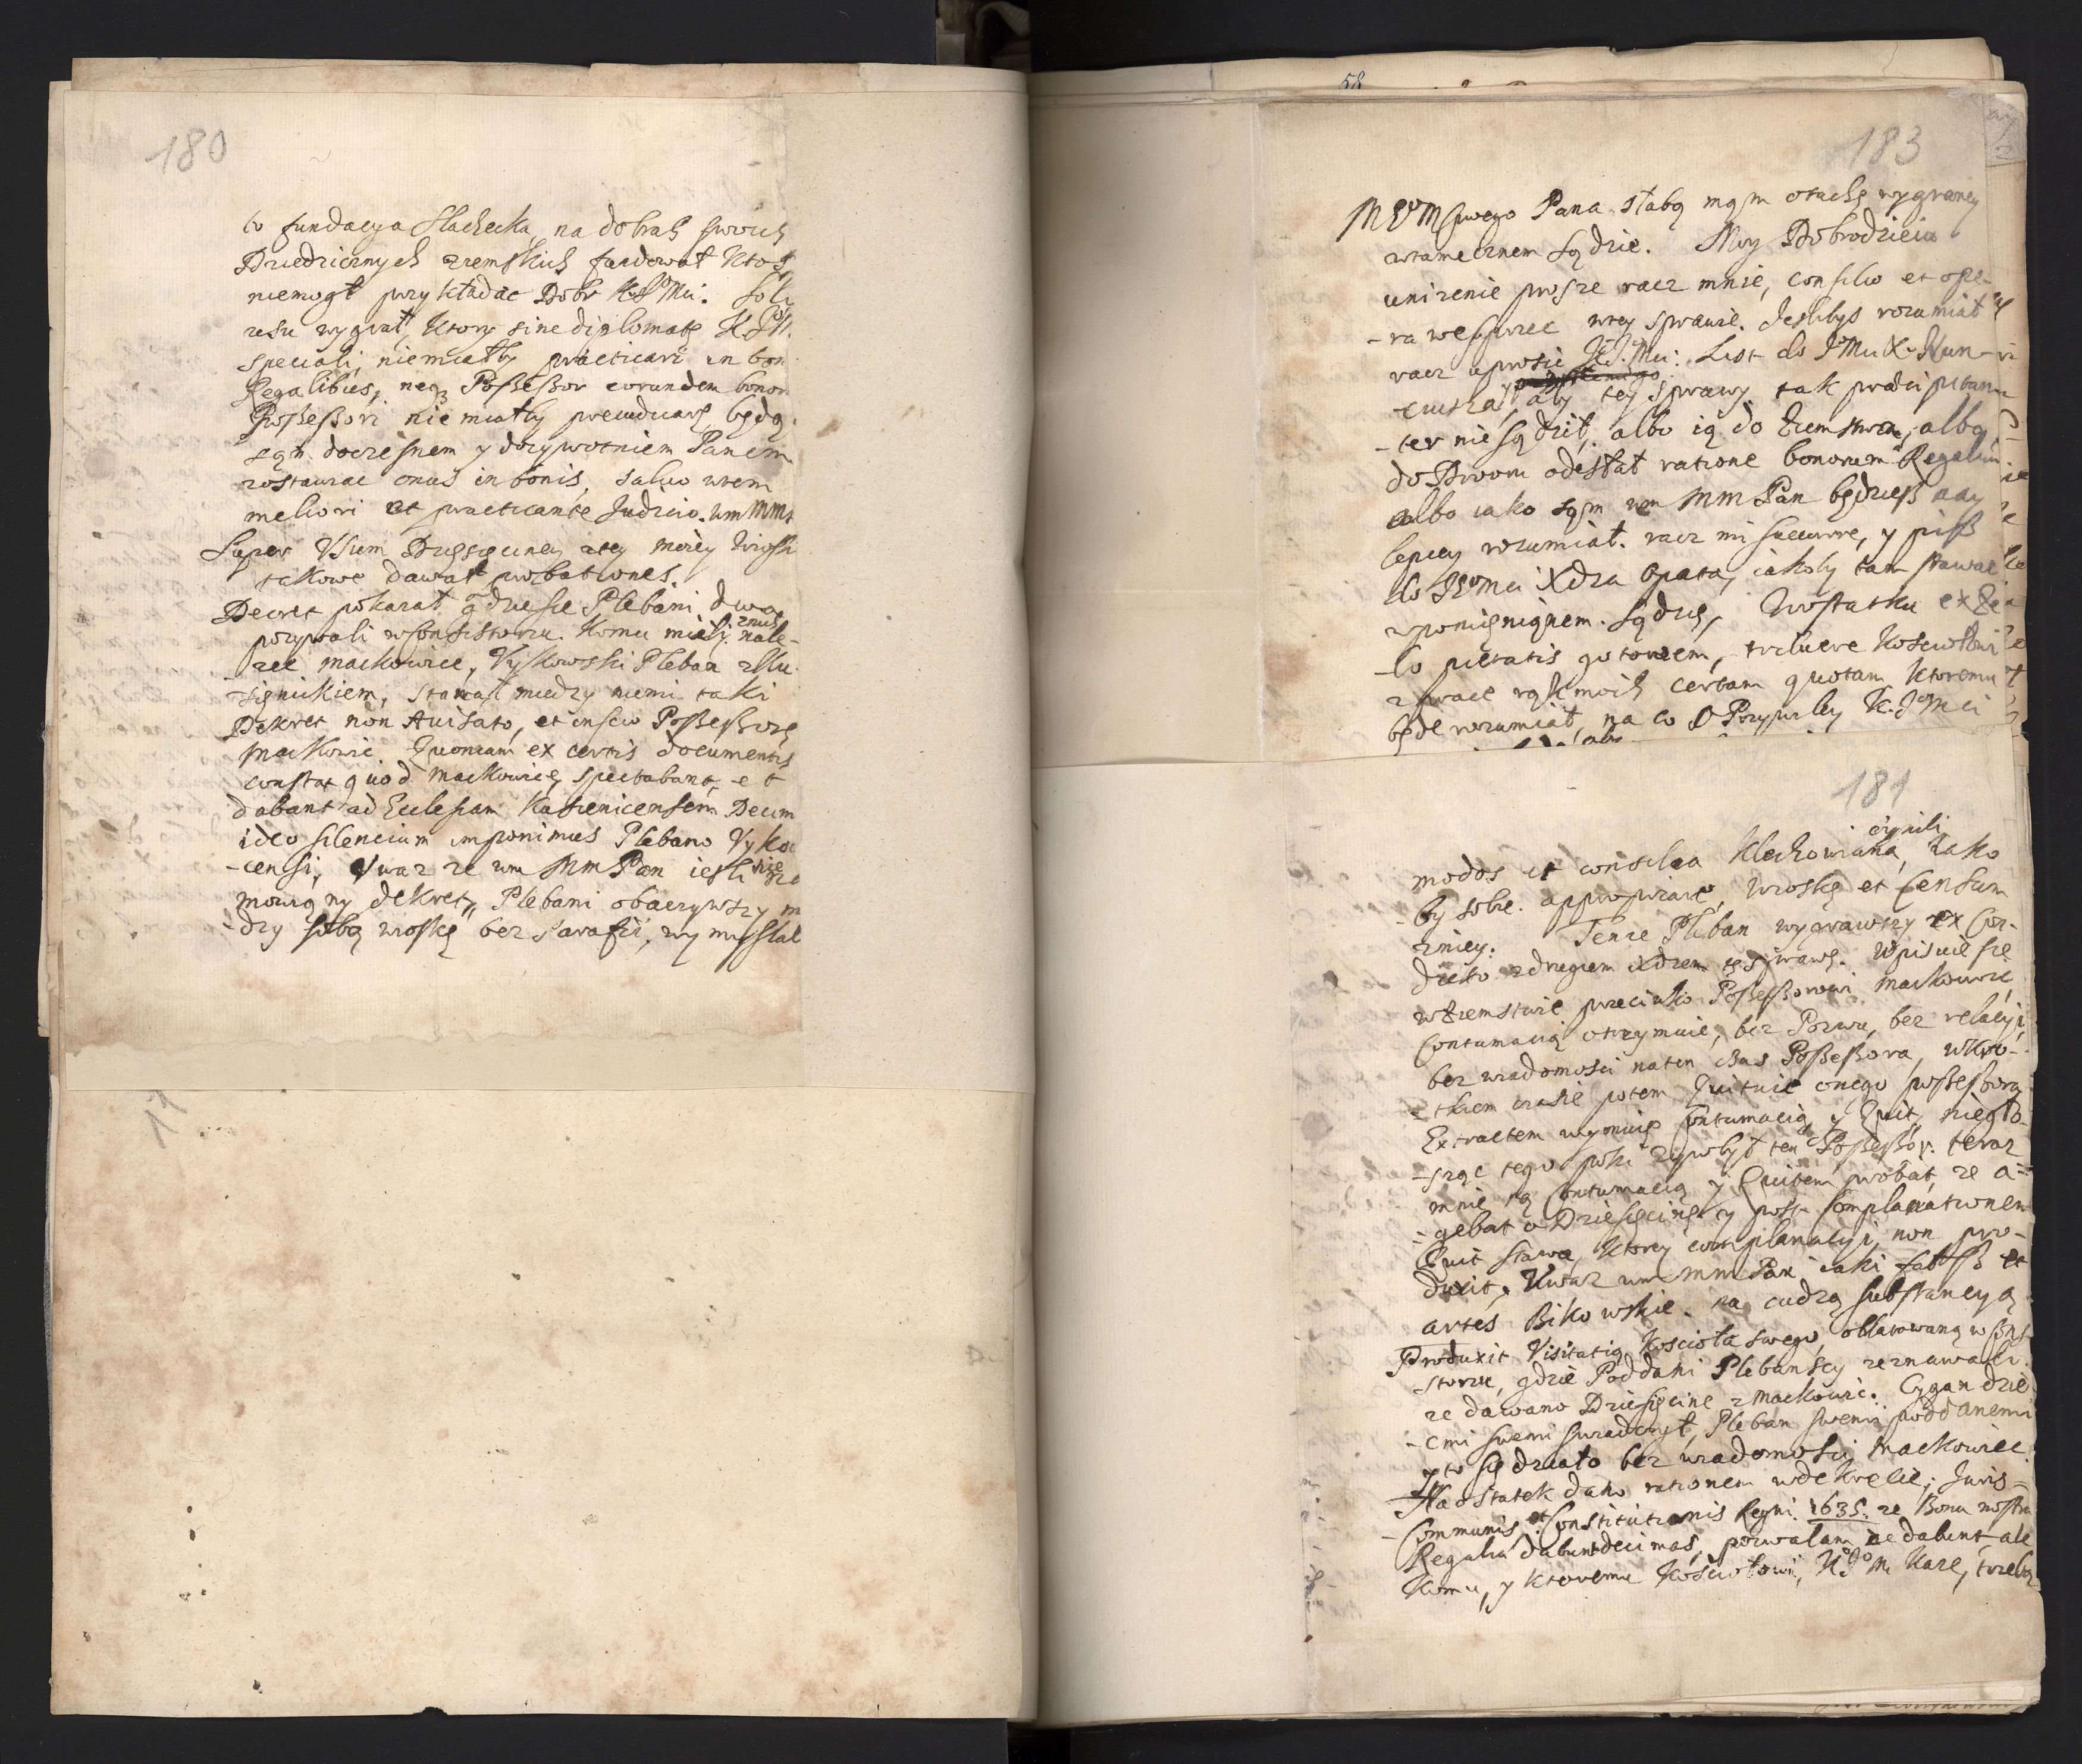 180
to fundacya Slachecka, na dobrach swoich
Dziedzicznych ziemskich fundował Ktos
niemogł przykładac Dobr K. J Mci.
resu wygrał, Ktory sine diplomate K. J M.
speciali, niemiałby practicari in bon
Regalibus, neq Possessor eorundem bonor
Possessori niemiałby preiudicare, będą
docżesnem y dozywotniem Panem
zostawac onus in bonis, saluo
meliori et practicante Judicio. wm MMs
Super Vsum Dziesięciney ztey
takowe dawał probationes.
Decret pokazał gdzie sie Plebani dwa
pozywali wConsistorzu. Komu mieli znich nale-
-zec mackowice, Vyskowski Pleban zKu
-signickiem, stanął miedzy niemi taki
Dekret non Auisato, et inscio Possessore
Mackowic. Quoniam ex certis documentis
constat quod Mackowice spectabant, et
dabant ad Ecclesiam Kasienicensem Decim
ideo silencium imponimus Plebano Vykow
-censi, Vwaz ze wm MmPan iesli nie
mowiony dekret, Plebani obaczywszy m
-dzy sobą wioskę bez Parafii, wymyslal
58
183
MWMswego Pana słabą mam otuchę wygraney
wtamecznem sądzie. Moy Dobrodzieiu
unizenie prosze racz mnie, consilio et ope-
-ra wesprzec wtey sprawie. Jesliбys rozumiał
racz uprosic K. J. Mci: List do J Mci X. Nun-
-ciusza, aby tey sprawy tak præcipitan
-ter nie sądził, albo ią do Ziemstwa, albo
do Dworu odesłał ratione bonorum Regalium
albo iako sam wm MM Pan będziesz nay
lepiey rozumiał. racz mi succurre, y pisz
do J Mci Xdza Opata, iakoby tam stawal
wpomienionem Sądzie, Zwostatku ex Ze
-lo pietatis gotowem, tribuere Kosciołowi
zprace rąkmoich certam quotam Ktoremu
będe rozumiał, na co o Przywiley K. J Mci
181
modos et consilia Klechowiana, czynili zako
-by sobie appropriare, wioskę et Censum
zniey. Tenze Pleban wygrawszy ex Cor-
dicto zdrugiem Xdzem tę sprawę. Wpisuie sie
wZiemstwie przeciwko Possessorowi Mackowic
Contumacią otrzymuie, bez Pozwu, bez relacyi,
bez wiadomosci naten czas Possessora, wkro-
-tkiem czasie potem Quituie onego possessora
Extractem wyimuie Contumacią y Quit, niegło-
-sząc tego poki zywbył ten Possessor. teraz
mnie tą Contumacią y Quitem probat, ze a-
-gebat o Dziesięcinę y post Complanationem
Quit stawa, Ktorey complanacyi, non pro-
duxit, Vwaz wm MM Pan iaki fałsz et
artes Bikowskie na cudzą substancyą
Produxit Visitatią Koscioła swego, oblatowaną w Consi-
storzu, gdzie Poddani Plebanscy zeznawali
ze dawano Dziesięcine z Mackowic. Cygan dzie-
-cmi swemi swiadczył, Pleban swemi poddanemi
y to się działo bez wiadomosci Mackowiec
Naostatek dano rationem wdekrecie, Juris-
-Communis, et Constitutionis Regni. 1635. ze Bona nostra
Regalia dabunt decimas, pozwalam ze dabunt, ale
Komu, y Ktoremu Kosciołowi, K. J. M. Kaze, trzeba